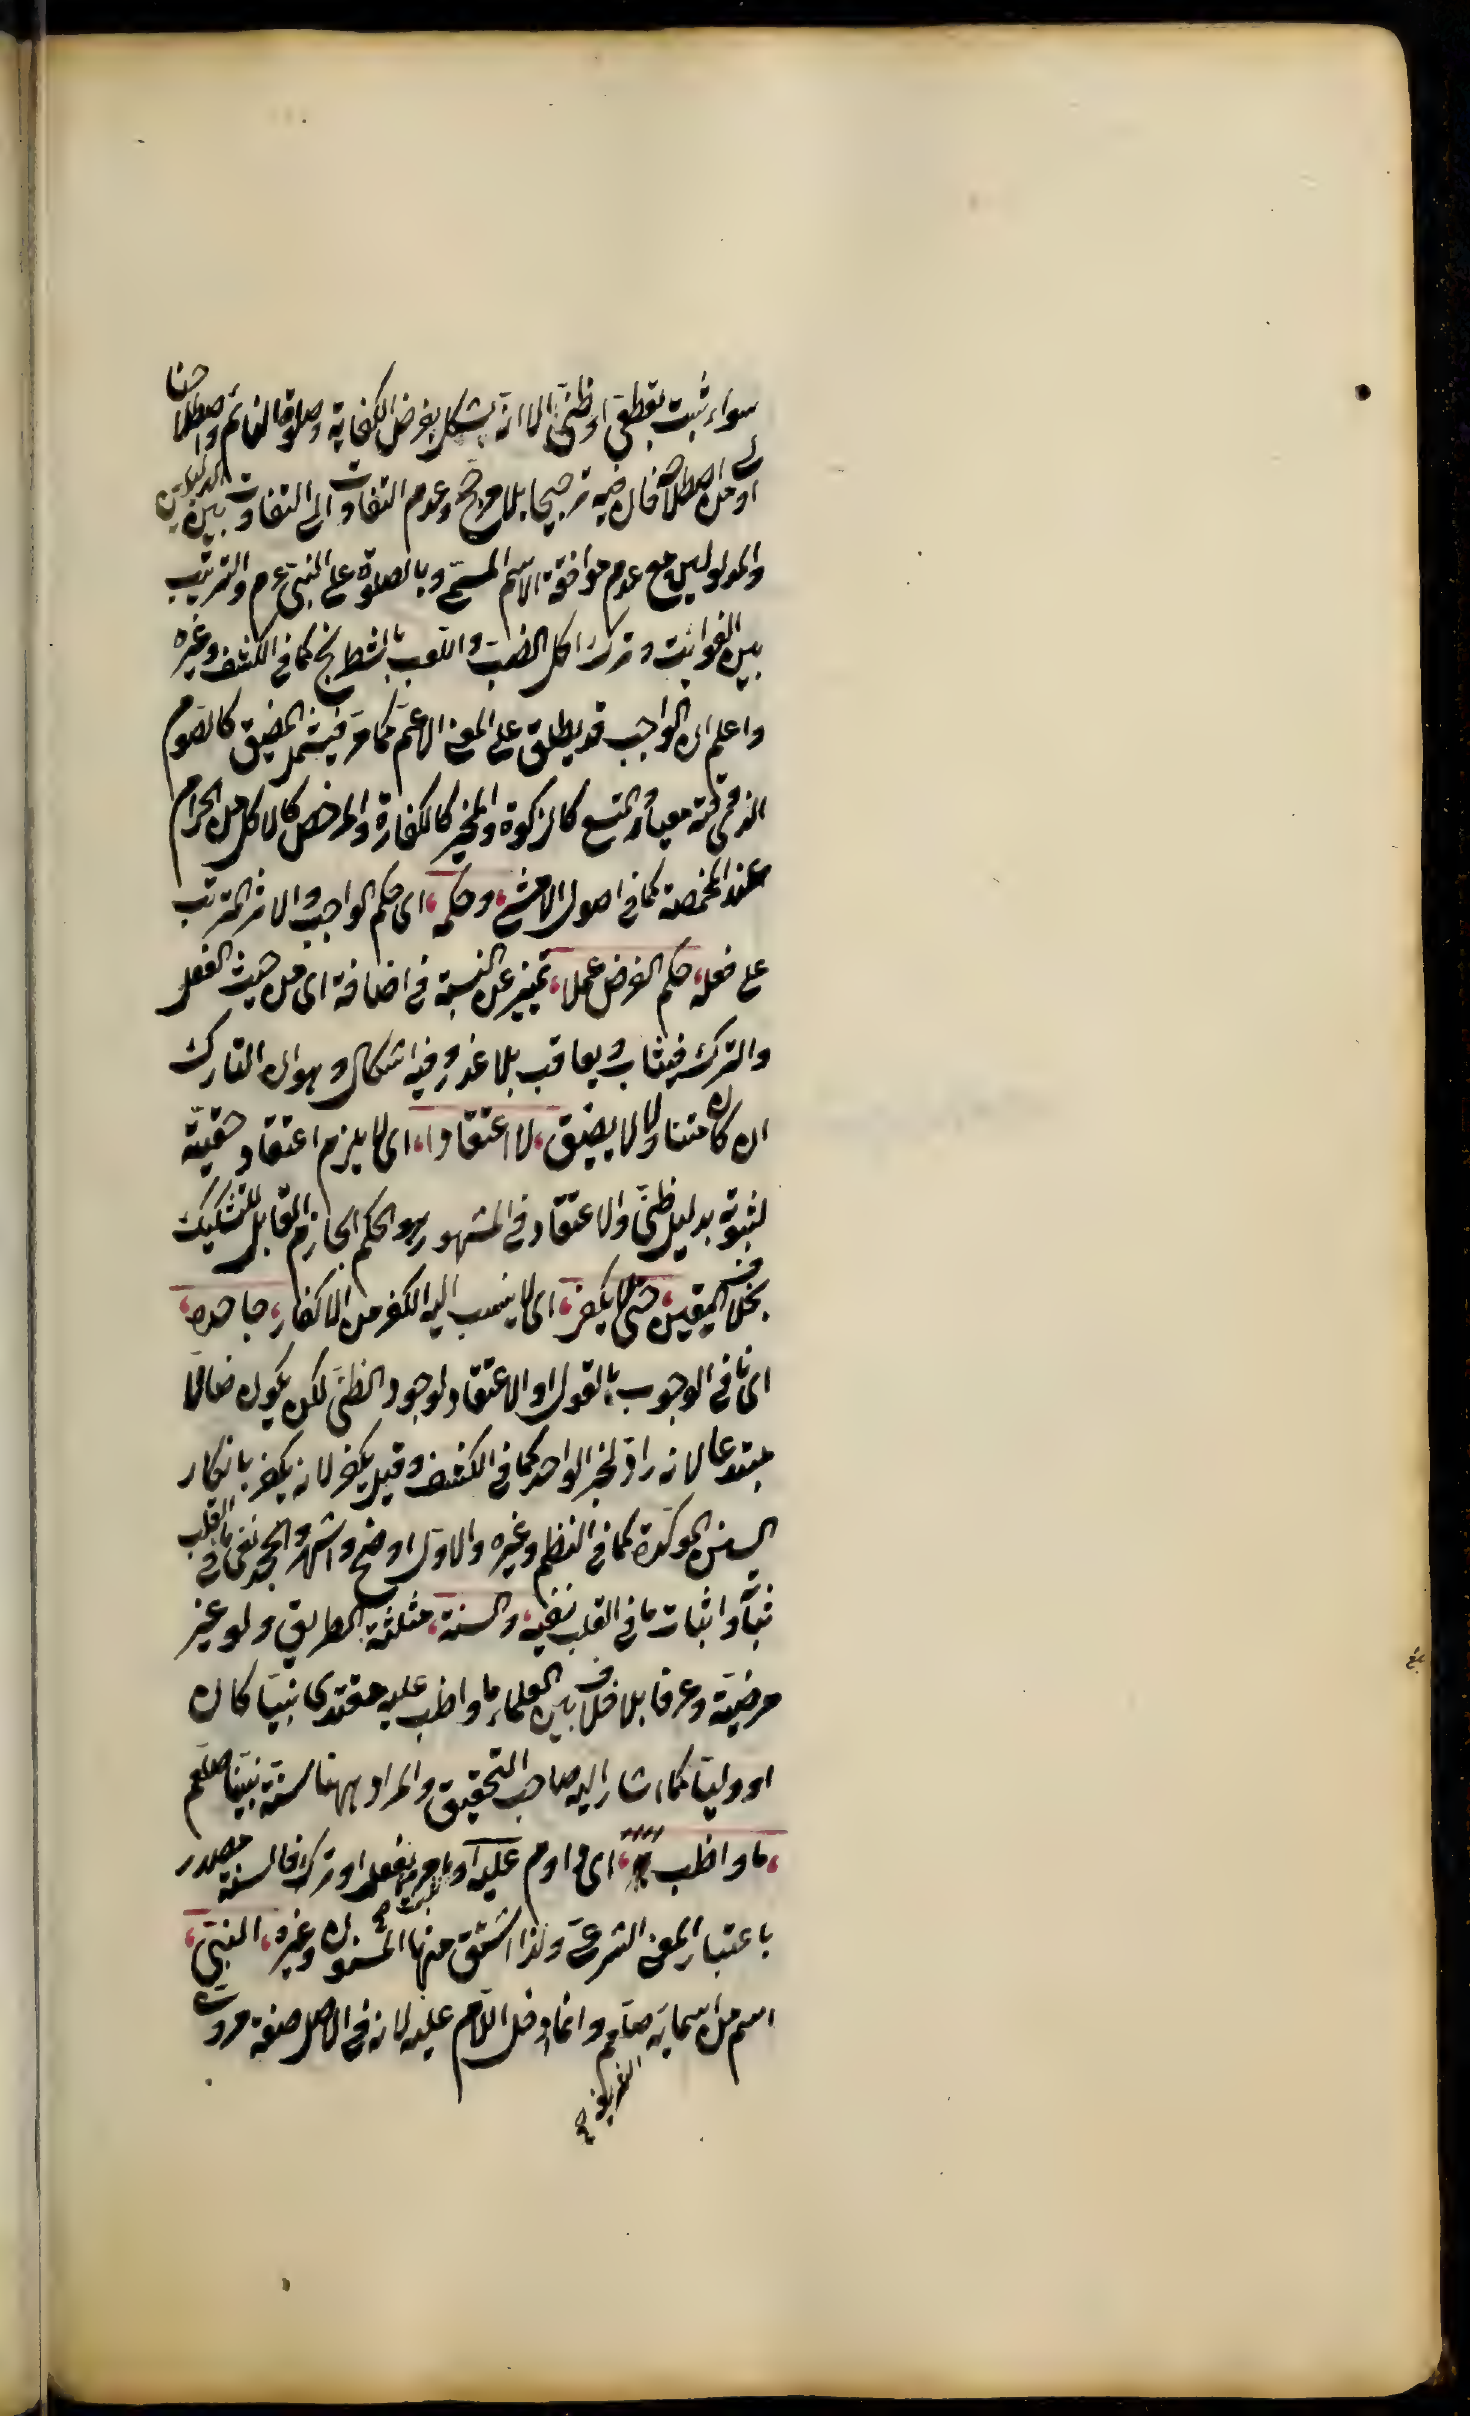 سواء ثبت بقطعى او ظنى الا انه يشكل بفرض الكفاية وصلوة النائم واصطلاحنا
اولى من اصطلاحه فان فيه ترجيحا بلا مرجح وعدم التفات الى التفاوت بين الدليلين
والمدلولين مع عدم موافقة الاسم المسمى وبالصلوة على النبى عم والترتيب
بين الفوائت وترك اكل الضب واللعب بالشطرنج كما فى الكشف وغيره
واعلم ان الواجب قد يطلق على المعنى الاعم كما مر فيشمل المضيق كالصوم
الذى وقته معياره والمتسع كالزكوة والمخير كالكفارة والمرخص كالاكل من الحرام
عند المخمصة كما فى اصول الامشى، وحكمه، اى حكم الواجب والاثر المترتب
على فعله، حكم الفرض عملا، تمييز عن النسبة فى اضافة اى من حيث الفعل
والترك فيثاب ويعاقب بلا عذر وفيه اشكال وهو ان التارك
ان كان متناولا لا يضيق، لا اعتقادا، اى لا يلزم اعتقاد حقيته
لثبوته بدليل ظنى والاعتقاد فى المشهور هو الحكم الجازم القابل للتشكيك
بخلاف اليقين، حتى لا يكفر، اى لا ينسب اليه الكفر من الاكفار، جاحده،
اى نافى الوجوب بالقول او الاعتقاد لوجود الظنى لكن يكون ضالا
مبتدعا لانه راد لخبر الواحد كما فى الكشف وقيل يكفر لانه يكفر بانكار
السنن المؤكدة كما فى النظم وغيره والاول اوضح واشهر والجحد نفى ما فى القلب
ثباته واثبات ما فى القلب نفيه، والسنة، مثلثة الطريق ولو غير
مرضية وعرفا بلا خلاف بين العلماء ما واظب عليه مقتدى نبيا كان
او وليا كما اشار اليه صاحب التحقيق والمراد ههنا سنة نبينا صلعم
، ما واظب، اى داوم عليه او ما امر به بفعل او ترك فالسنة مصدر
باعتبار المعنى الشرعى ولذا اشتق منها المسنون وغيره، النبى،
اسم من اسمائه صلعم وانما دخل اللام عليه لانه فى الاصل صفة مروية